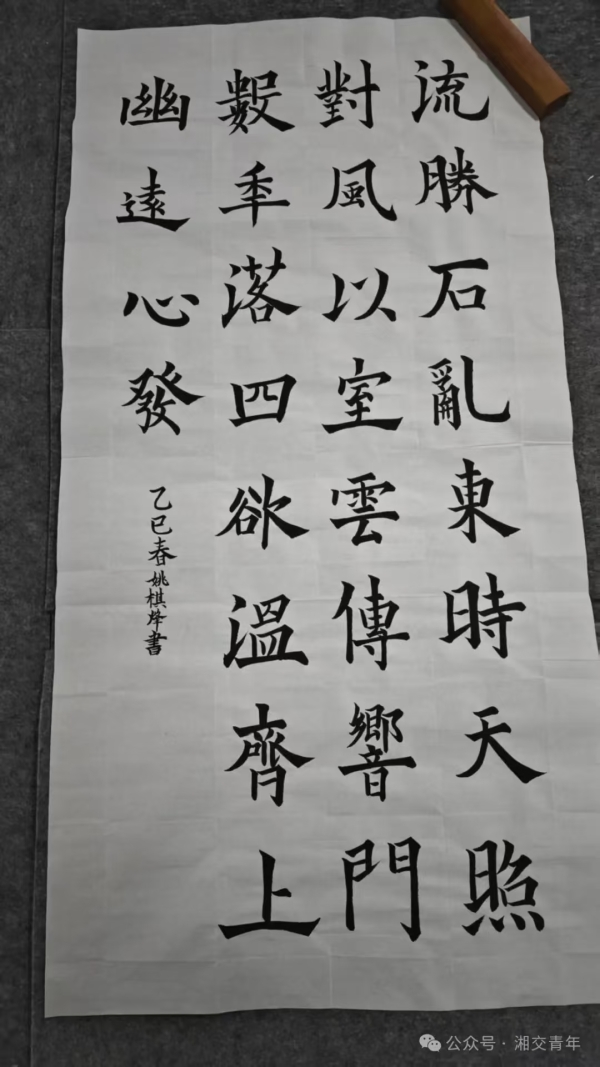 流勝石亂東時天照
對風以室雲傳響門
數年落四欲溫齊上
幽遠心發
乙巳春姚棋烽書
公众号·湘交青年